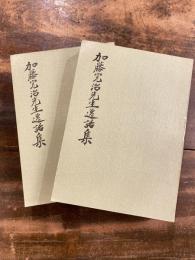 加藤完治先生遺話集
加藤完治先生遺話集